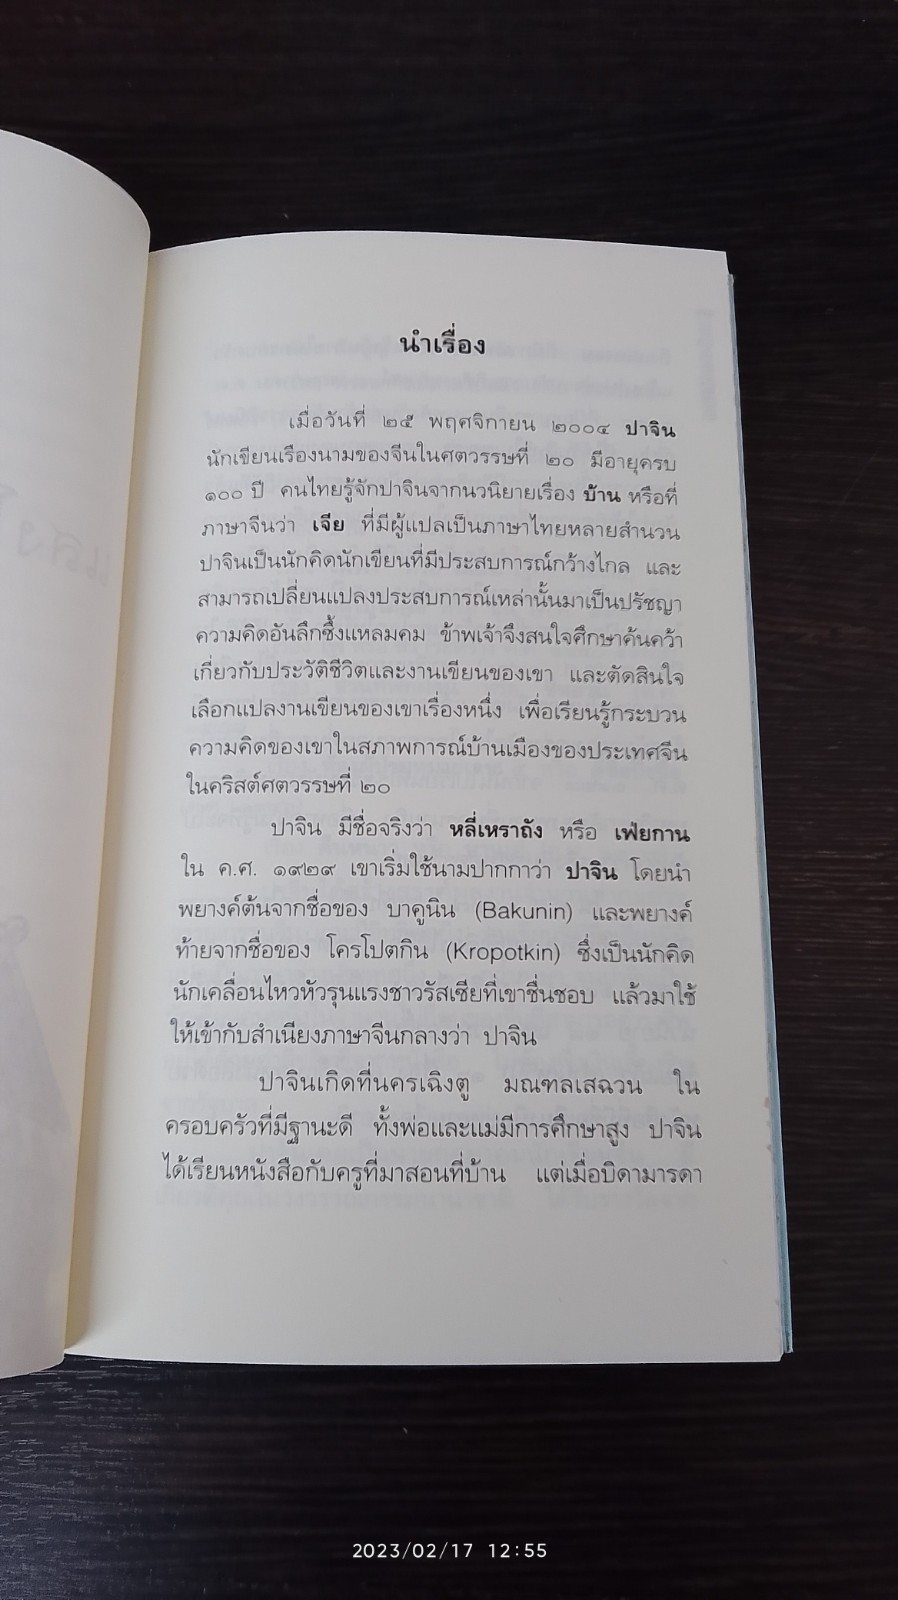 นำเรื่อง
เมื่อวันที่ ๒๕ พฤศจิกายน ๒๐๐๔ ปาจิน
นักเขียนเรืองนามของจีนในศตวรรษที่ ๒๐ มีอายุครบ
๑๐๐ ปี คนไทยรู้จักปาจินจากนวนิยายเรื่อง บ้าน หรือที่
ภาษาจีนว่า เจีย ที่มีผู้แปลเป็นภาษาไทยหลายสำนวน
ปาจินเป็นนักคิดนักเขียนที่มีประสบการณ์กว้างไกล และ
สามารถเปลี่ยนแปลงประสบการณ์เหล่านั้นมาเป็นปรัชญา
ความคิดอันลึกซึ้งแหลมคม ข้าพเจ้าจึงสนใจศึกษาค้นคว้า
เกี่ยวกับประวัติชีวิตและงานเขียนของเขา และตัดสินใจ
เลือกแปลงานเขียนของเขาเรื่องหนึ่ง เพื่อเรียนรู้กระบวน
ความคิดของเขาในสภาพการณ์บ้านเมืองของประเทศจีน
ในคริสต์ศตวรรษที่ ๒๐
ปาจิน มีชื่อจริงว่า หลี่เหราถัง หรือ เฟ่ยกาน
ใน ค.ศ. ๑๙๒๙ เขาเริ่มใช้นามปากกาว่า ปาจิน โดยนำ
พยางค์ต้นจากชื่อของ บาคูนิน (Bakunin) และพยางค์
ท้ายจากชื่อของ โครโปตกิน (Kropotkin) ซึ่งเป็นนักคิด
นักเคลื่อนไหวหัวรุนแรงชาวรัสเซียที่เขาชื่นชอบ แล้วมาใช้
ให้เข้ากับสำเนียงภาษาจีนกลางว่า ปาจิน
ปาจินเกิดที่นครเฉิงตู มณฑลเสฉวน ใน
ครอบครัวที่มีฐานะดี ทั้งพ่อและแม่มีการศึกษาสูง ปาจิน
ได้เรียนหนังสือกับครูที่มาสอนที่บ้าน แต่เมื่อบิดามารดา
2023/02/17 12:55